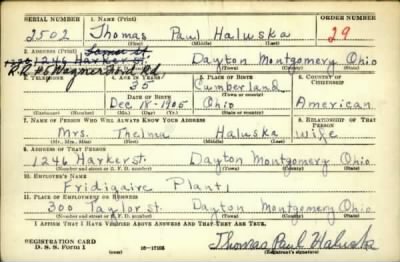 SERIAL NUMBER 1. NAME (Print) ORDER NUMBER
2502 Thomas Paul Haluska 29
(First) (Middle) (Last)
2. ADDRESS (Print)
1246 Harker St. Dayton Montgomery Ohio
R.R. #6 Wagner Ford Rd.
(Town) (County) (State)
3. TELEPHONE 4. AGE IN YEARS 5. PLACE OF BIRTH 6. COUNTRY OF CITIZENSHIP
35 Cumberland
DATE OF BIRTH (Town or county)
Dec 18-1905 Ohio American
(Exchange) (Number) (Mo.) (Day) (Yr.) (State or country)
7. NAME OF PERSON WHO WILL ALWAYS KNOW YOUR ADDRESS 8. RELATIONSHIP OF THAT PERSON
Mrs. Thelma Haluska wife
(Mr., Mrs., Miss) (First) (Middle) (Last)
9. ADDRESS OF THAT PERSON
1246 Harker St. Dayton Montgomery Ohio
(Number and street or R. F. D. number) (Town) (County) (State)
10. EMPLOYER'S NAME
Fridigaire Plant 1
11. PLACE OF EMPLOYMENT OR BUSINESS
300 Taylor St. Dayton Montgomery Ohio
(Number and street or R. F. D. number) (Town) (County) (State)
I AFFIRM THAT I HAVE VERIFIED ABOVE ANSWERS AND THAT THEY ARE TRUE.
REGISTRATION CARD
D. S. S. Form 1 (over) 16—17105 Thomas Paul Haluska
(Registrant's signature)